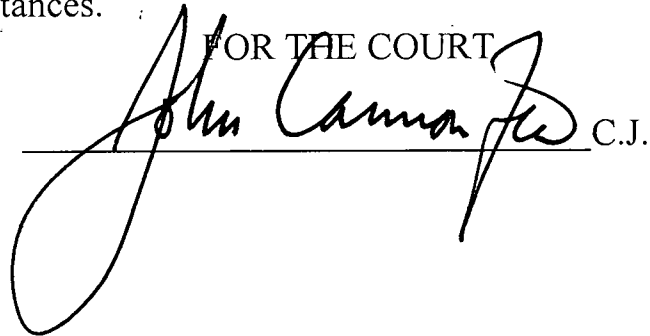 tances.
FOR THE COURT
John Cannon Few C.J.